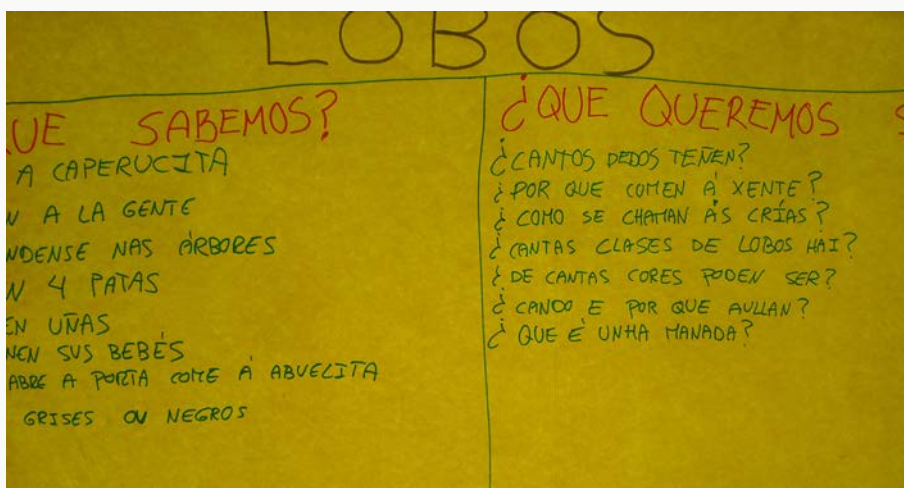 LOBOS
UE SABEMOS?
A CAPERUCITA
N A LA GENTE
NDENSE NAS ÁRBORES
N 4 PATAS
EN UÑAS
NEN SUS BEBÉS
ABRE A PORTA COME Á ABUELITA
GRISES OU NEGROS
¿QUE QUEREMOS S
¿CANTOS DEDOS TEÑEN?
¿POR QUE COMEN Á XENTE?
¿COMO SE CHAMAN ÁS CRÍAS?
¿CANTAS CLASES DE LOBOS HAI?
¿DE CANTAS CORES PODEN SER?
¿CANDO E POR QUE AULLAN?
¿QUE É UNHA MANADA?